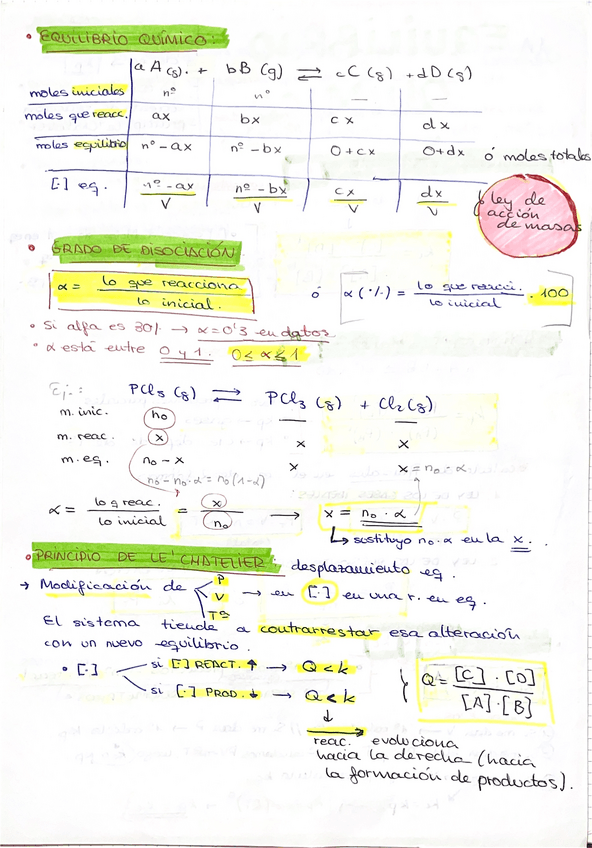 • EQUILIBRIO QUÍMICO:
a A(g). + b B (g) ⇌ c C (g) + d D (g)
moles iniciales nº nº — —
moles que reacc. ax bx cx dx
moles equilibrio nº-ax nº-bx 0+cx 0+dx ó moles totales
[·] eq. nº-ax/V nº-bx/V cx/V dx/V
ley de
acción
de masas
• GRADO DE DISOCIACIÓN
α = lo que reacciona / lo inicial. ó α (%) = lo que reacci. / lo inicial · 100
• Si alfa es 30% → α = 0'3 en datos
• α está entre 0 y 1. 0 ≤ α ≤ 1
Ej.: PCl5 (g) ⇌ PCl3 (g) + Cl2 (g)
m. inic. n0 — —
m. reac. x x x
m. eq. n0 - x x x = n0 · α
n0 - n0 · α = n0 (1-α)
α = lo q reac. / lo inicial = x / n0 → x = n0 · α
↳ sustituyo n0 · α en la x.
• PRINCIPIO DE LE' CHATELIER: desplazamiento eq.
→ Modificación de P V Tª → en [·] en una r. en eq.
El sistema tiende a contrarrestar esa alteración
con un nuevo equilibrio.
• [·] si [·] REACT. ↑ → Q < k
si [·] PROD. ↓ → Q < k
} Q = [C] · [D] / [A] · [B]
↓
→
reac. evoluciona
hacia la derecha (hacia
la formación de productos).